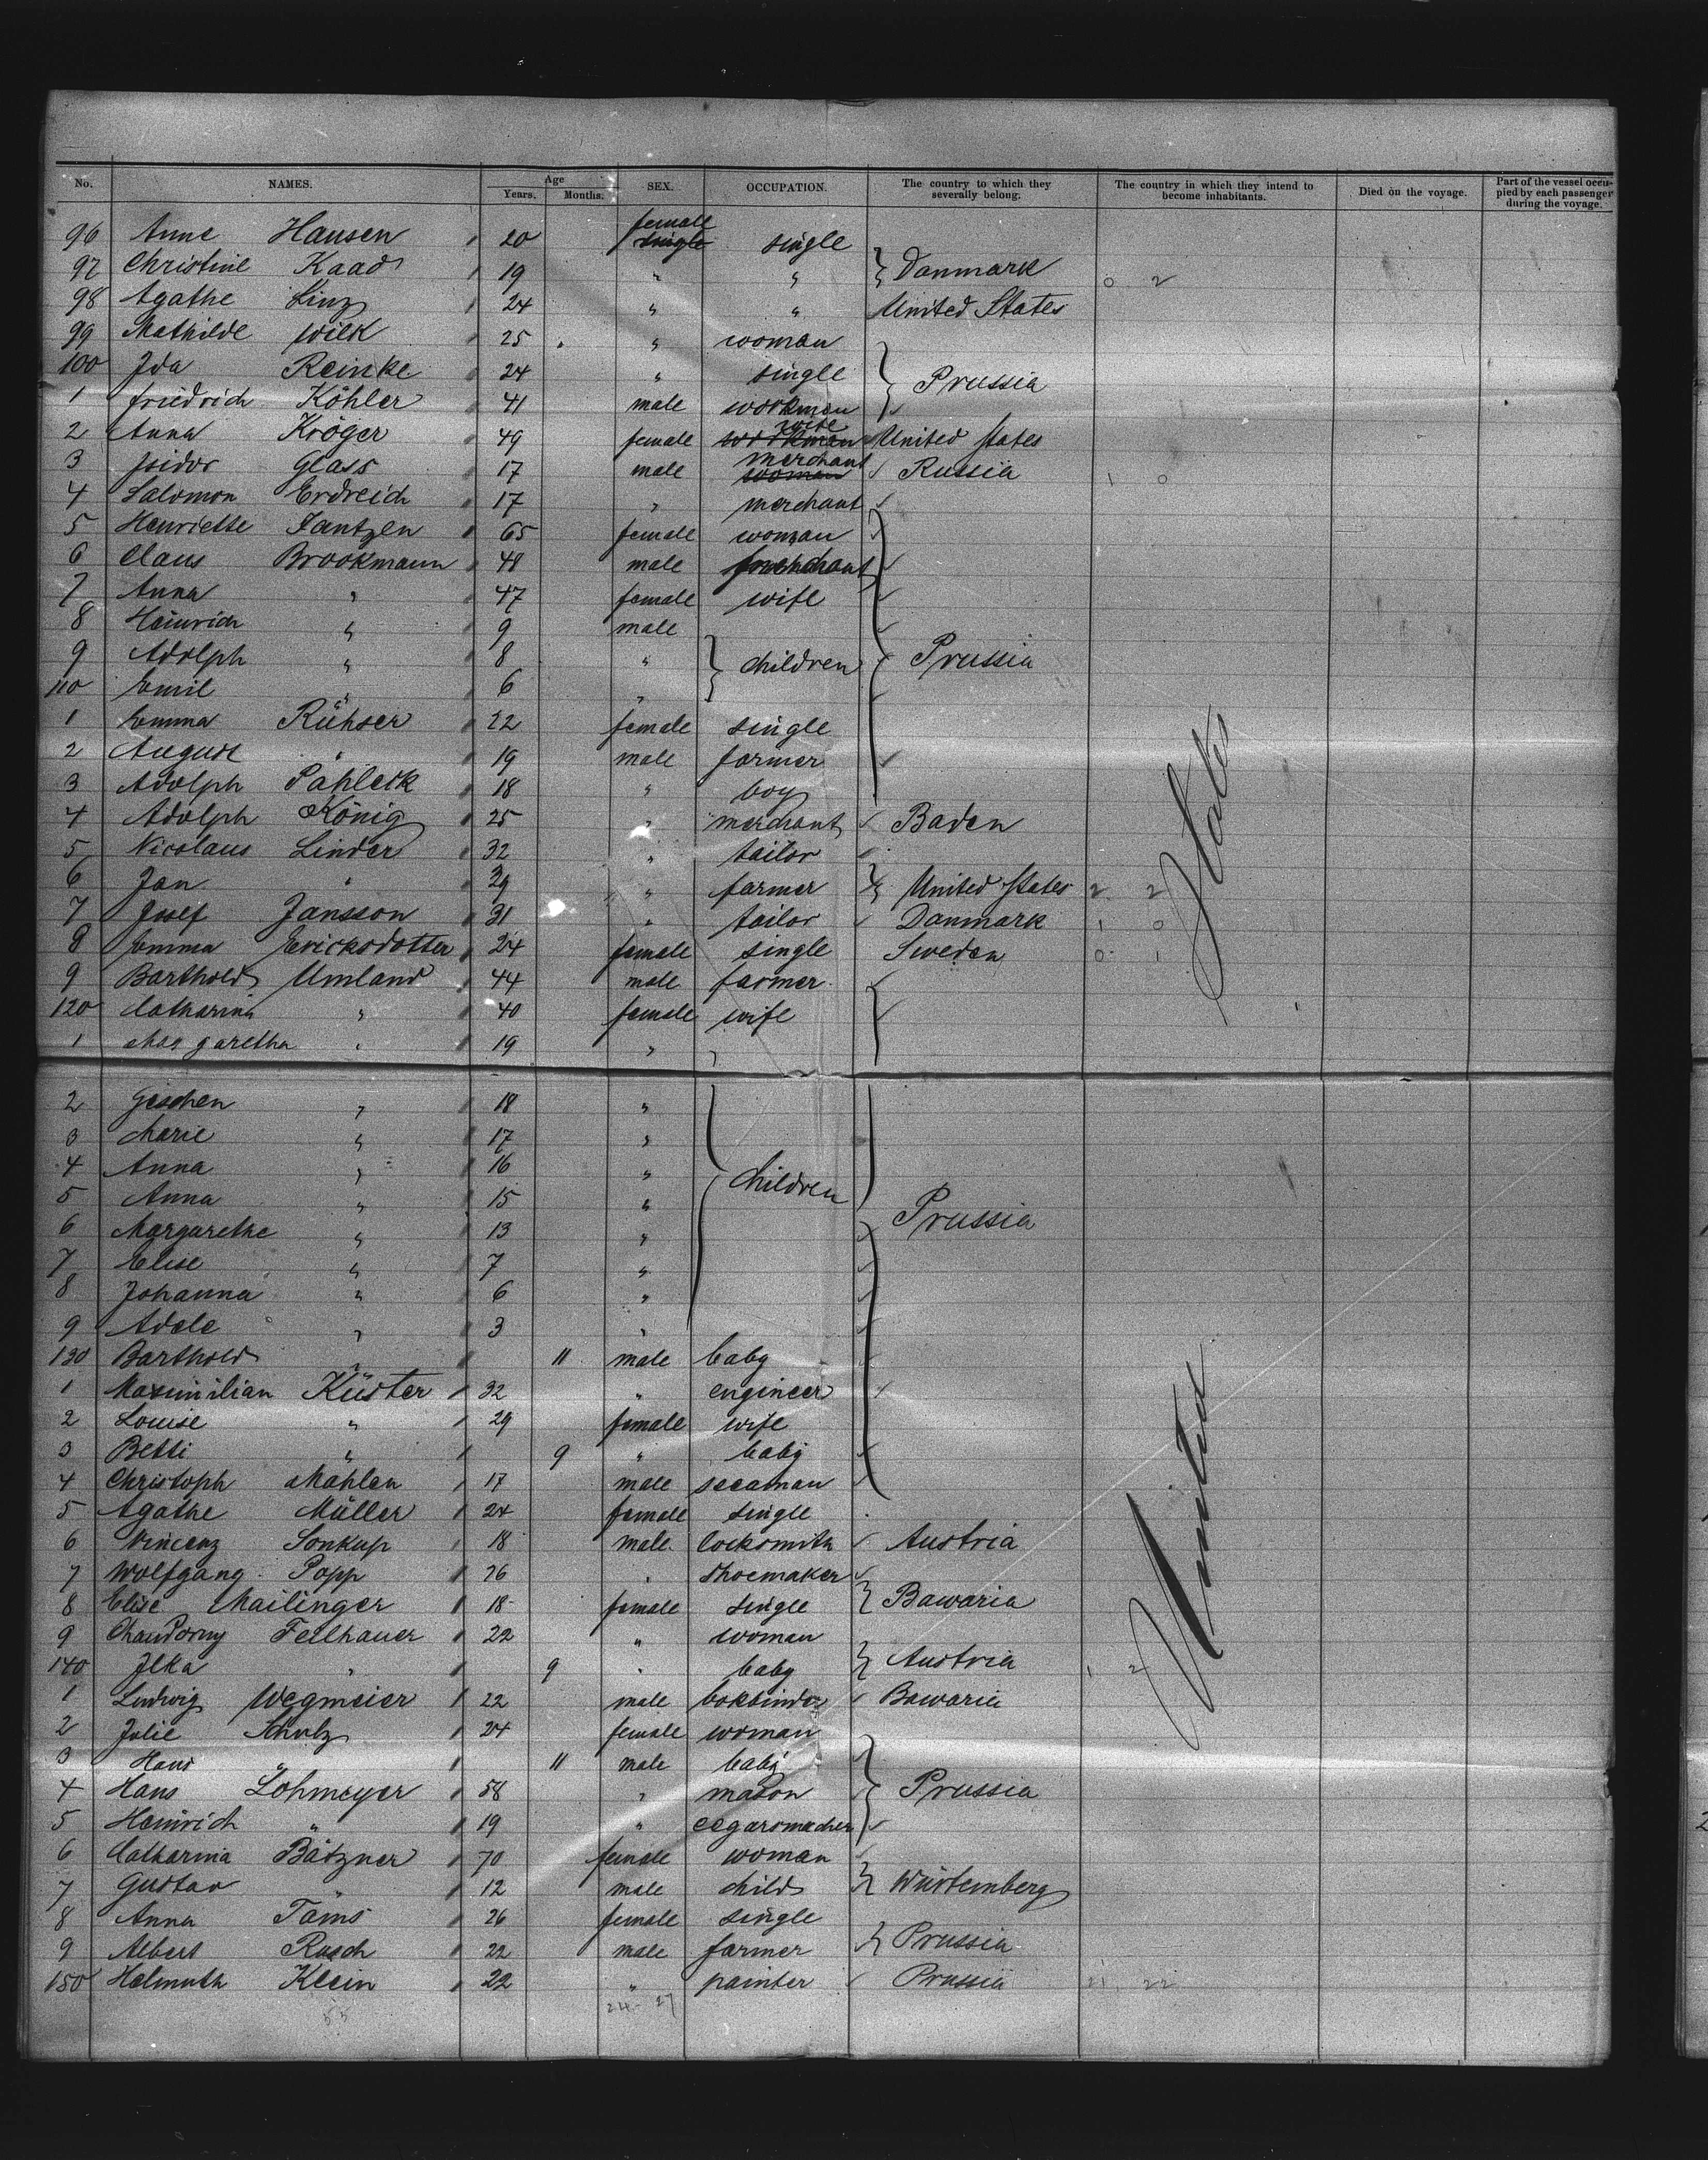 No. NAMES. Age Years. Months. SEX. OCCUPATION. The country to which they severally belong. The country in which they intend to become inhabitants. Died on the voyage. Part of the vessel occupied by each passenger during the voyage.
96 Anne Hansen 20 female single single
97 Christine Kaad 19 " " } Danmark 0 2
98 Agathe Linz 24 " " United States
99 Mathilde Wilk 25 " woman
100 Ida Reinke 24 " single } Prussia
1 Friedrich Köhler 41 male workman
2 Anna Kröger 49 female workman wife United States
3 Isidor Glass 17 male woman merchant Russia 1 0
4 Salomon Erdreich 17 " merchant
5 Henriette Jantzen 65 female woman
6 Claus Brookmann 48 male
7 Anna " 47 female wife
8 Heinrich " 9 male
9 Adolph " 8 " } children Prussia
110 Emil " 6 "
1 Emma Rühser 22 female single
2 August " 19 male farmer
3 Adolph Pahleik 18 " boy
4 Adolph König 25 " merchant Baden
5 Nicolaus Linder 32 " tailor
6 Jan " 29 " farmer } United States 2 2
7 Josef Jansson 31 " tailor Danmark 1 0
8 Emma Ericksdotter 24 female single Sweden 0 1
9 Barthold Umland 44 male farmer
120 Catharina " 40 female wife
1 Margaretha " 19 " "
2 Geschen " 18 "
3 Marie " 17 "
4 Anna " 16 "
5 Anna " 15 " children Prussia
6 Margarethe " 13 "
7 Elise " 7 "
8 Johanna " 6 "
9 Adele " 3 "
130 Barthold " 11 male baby
1 Maximilian Küster 32 " engineer
2 Louise " 29 female wife
3 Betti " 9 " baby
4 Christoph Mahlen 17 male seeaman
5 Agathe Müller 24 female single
6 Vincenz Sonkup 18 male locksmith Austria
7 Wolfgang Popp 26 " shoemaker
8 Elise Mailinger 18 female single } Bawaria
9 Feilhauer 22 " woman
140 Ilka " 9 " baby } Austria 1 2
1 Ludwig Wegmeier 22 male bokbinder Bawaria
2 Julie Schulz 24 female woman
3 Hans " 11 male baby
4 Hans Lohmeyer 58 " mason } Prussia
5 Heinrich " 19 " cegarsmacher
6 Catharina Bätzner 70 female woman
7 Gustav " 12 male child } Würtemberg
8 Anna Tams 26 female single
9 Albert Rusch 22 male farmer } Prussia
150 Helmuth Klein 22 " painter Prussia 21 22
55 24 27
United States